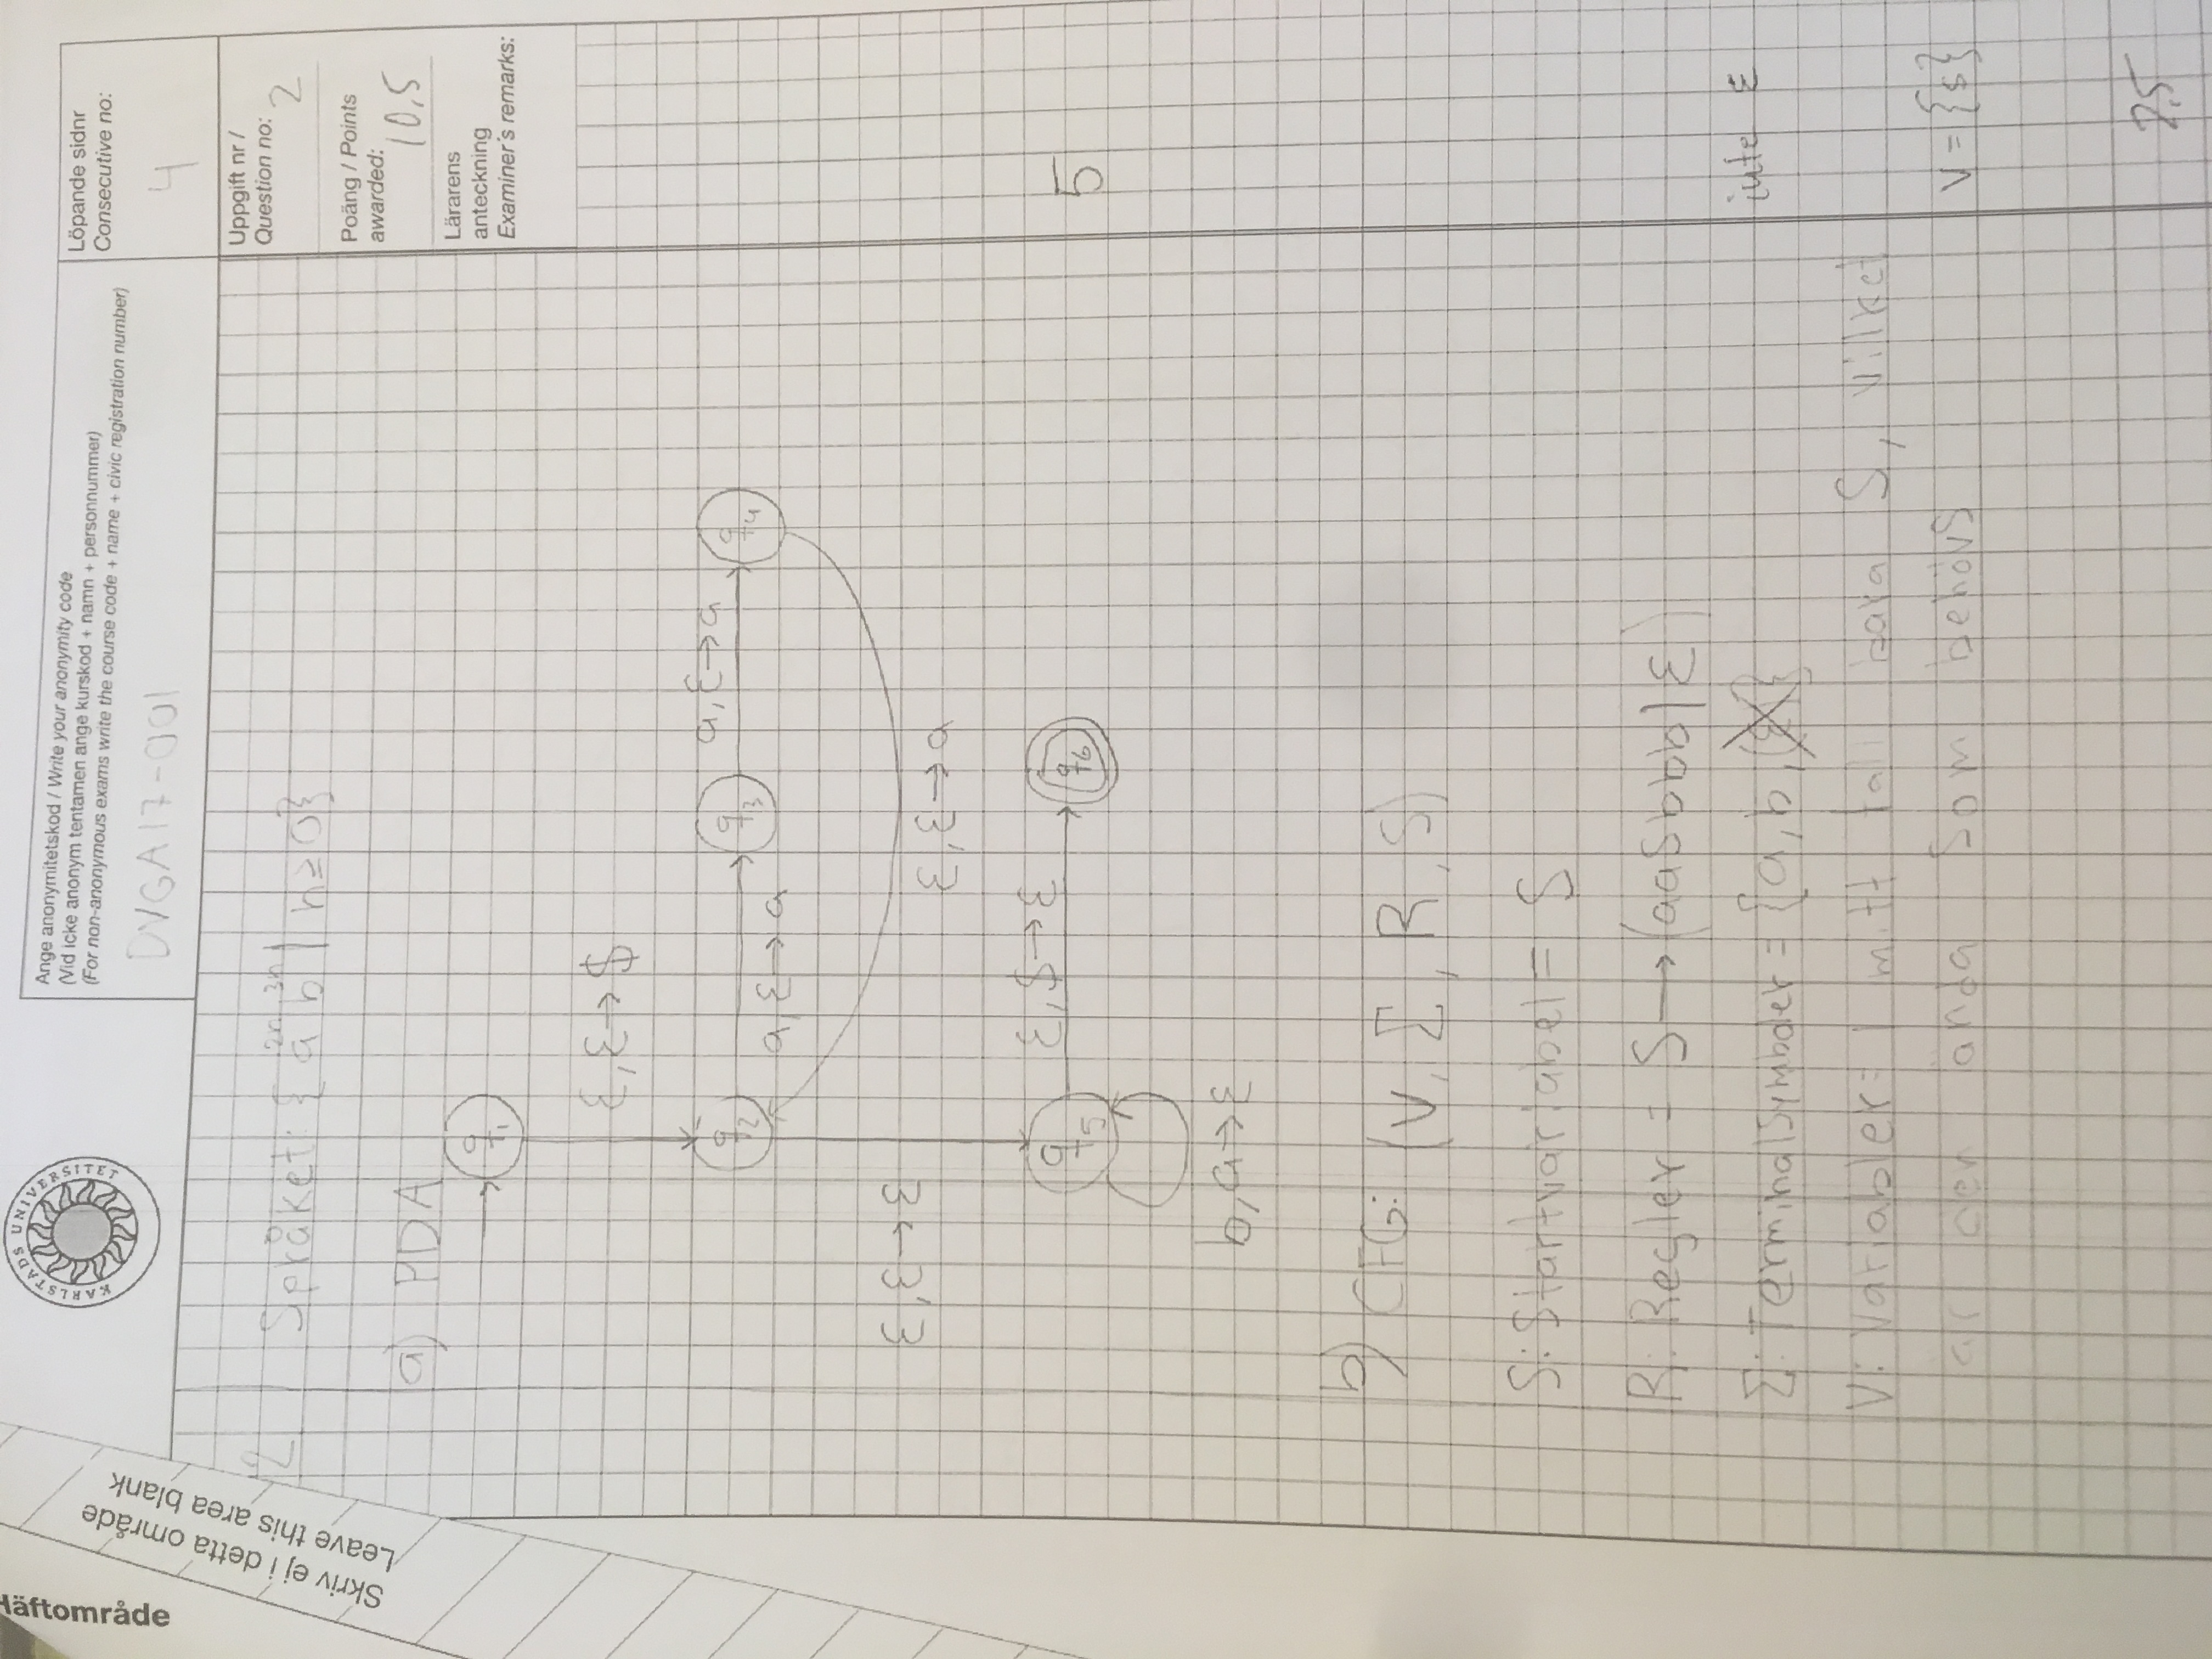 Häftområde
Skriv ej i detta område
Leave this area blank
KARLSTADS UNIVERSITET
Ange anonymitetskod / Write your anonymity code
(Vid icke anonym tentamen ange kurskod + namn + personnummer)
(For non-anonymous exams write the course code + name + civic registration number)
DVGA17-001
Löpande sidnr
Consecutive no:
4
Uppgift nr /
Question no:
2
Poäng / Points
awarded:
10,5
Lärarens
anteckning
Examiner's remarks:
2
Språket: {a^2n b^3n | n ≥ 0}
a) PDA
q1
ε, ε → $
q2
a, ε → a
q3
a, ε → a
q4
ε, ε → ε
ε, ε → a
q5
ε, $ → ε
q6
5
b, a → ε
b) CFG: (V, Σ, R, S)
S: Startvariabel = S
R: Regler = S → (aaSbbb | ε)
Σ: Terminalsymboler = {a, b, (ε)}
inte ε
V: Variabler = I mitt fall bara S, vilket
är den ända som behövs
V = {s}
2,5